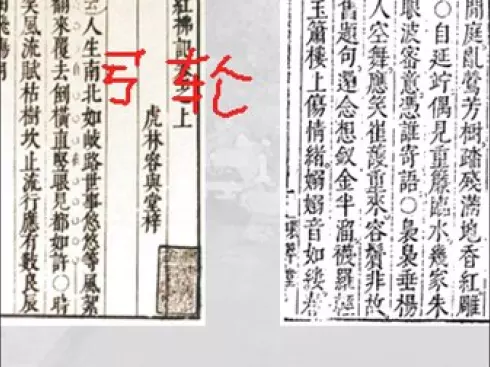 轮
紅拂記卷之上
虎林容與堂梓
人生南北如岐路世事悠悠等風絮
翻來覆去倒橫直豎眼見都如許○時
風流賦枯樹坎止流行應有數良辰
閒庭亂鶯芳樹踏殘滿地香紅雕
○自延竚偶見重簾臨水幾家朱
眼波審意憑誰寄語○裊裊垂楊
人空舞應笑崔護重來容鬢非故
舊題句還念想釵金半溜襪羅
玉簫樓上傷情緒嫋嫋音如縷